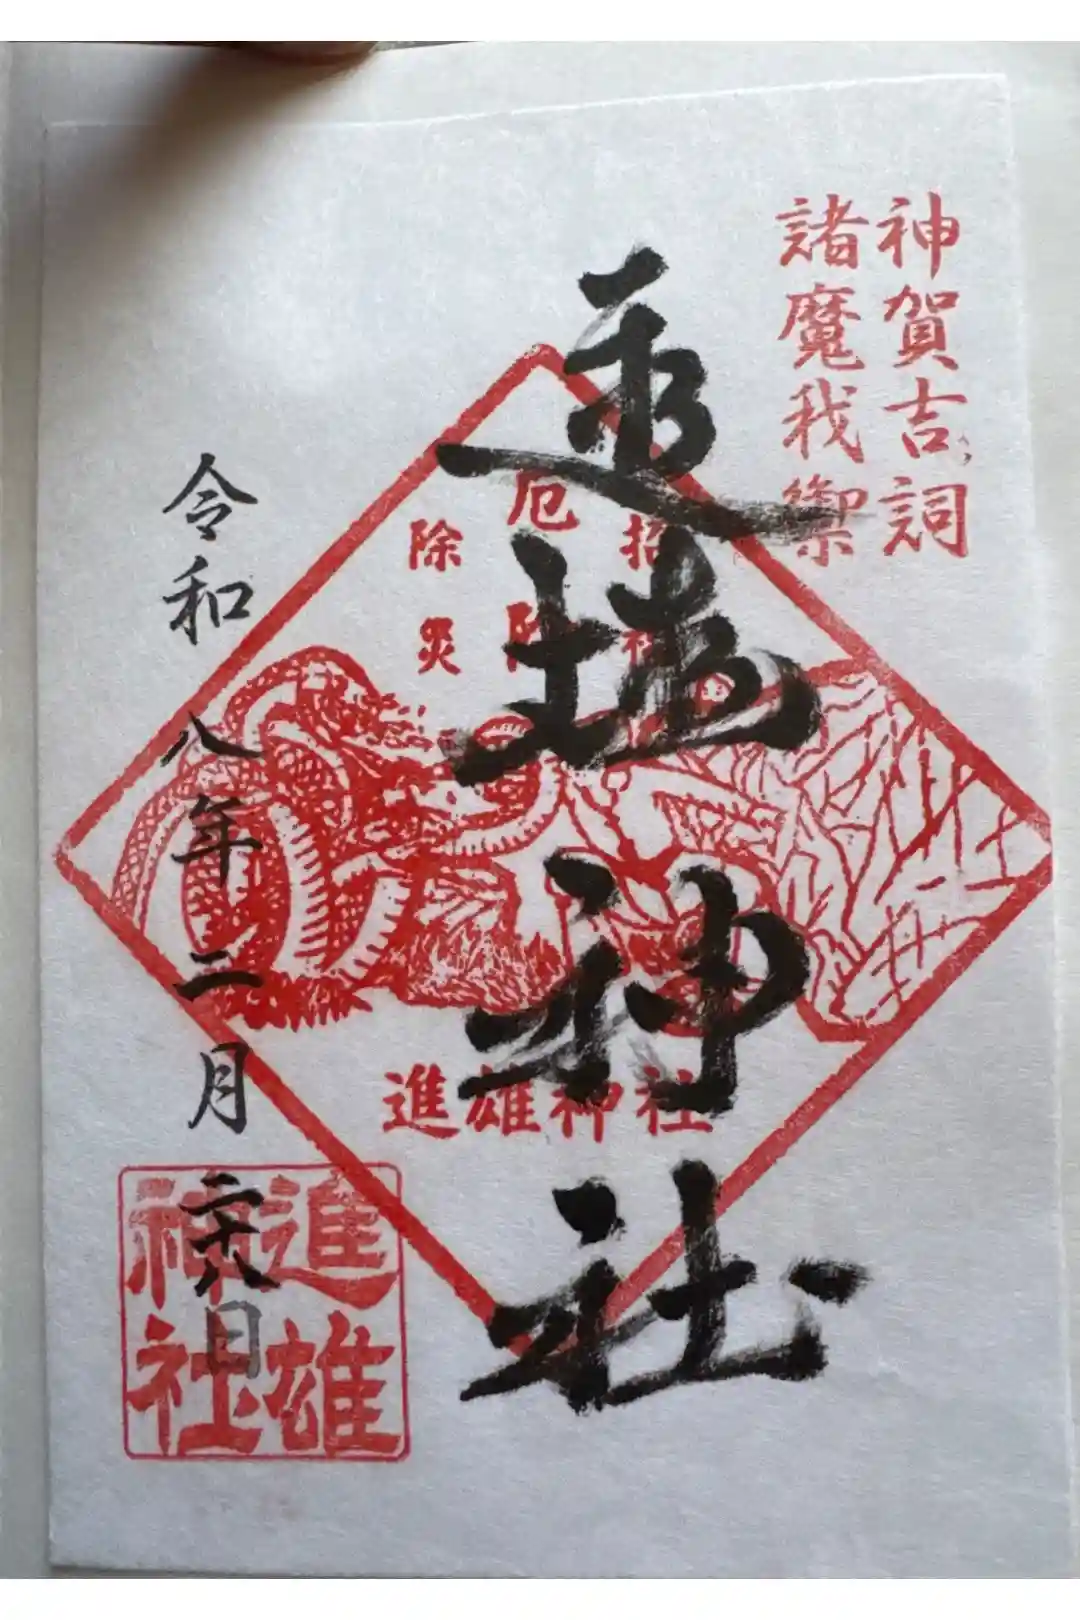 神賀吉詞
諸魔我禦
進雄神社
厄除
除災
進雄神社
令和八年二月二十八日
進雄
神社